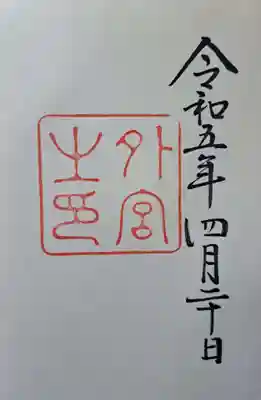 令和五年四月二十日
外宮
之印